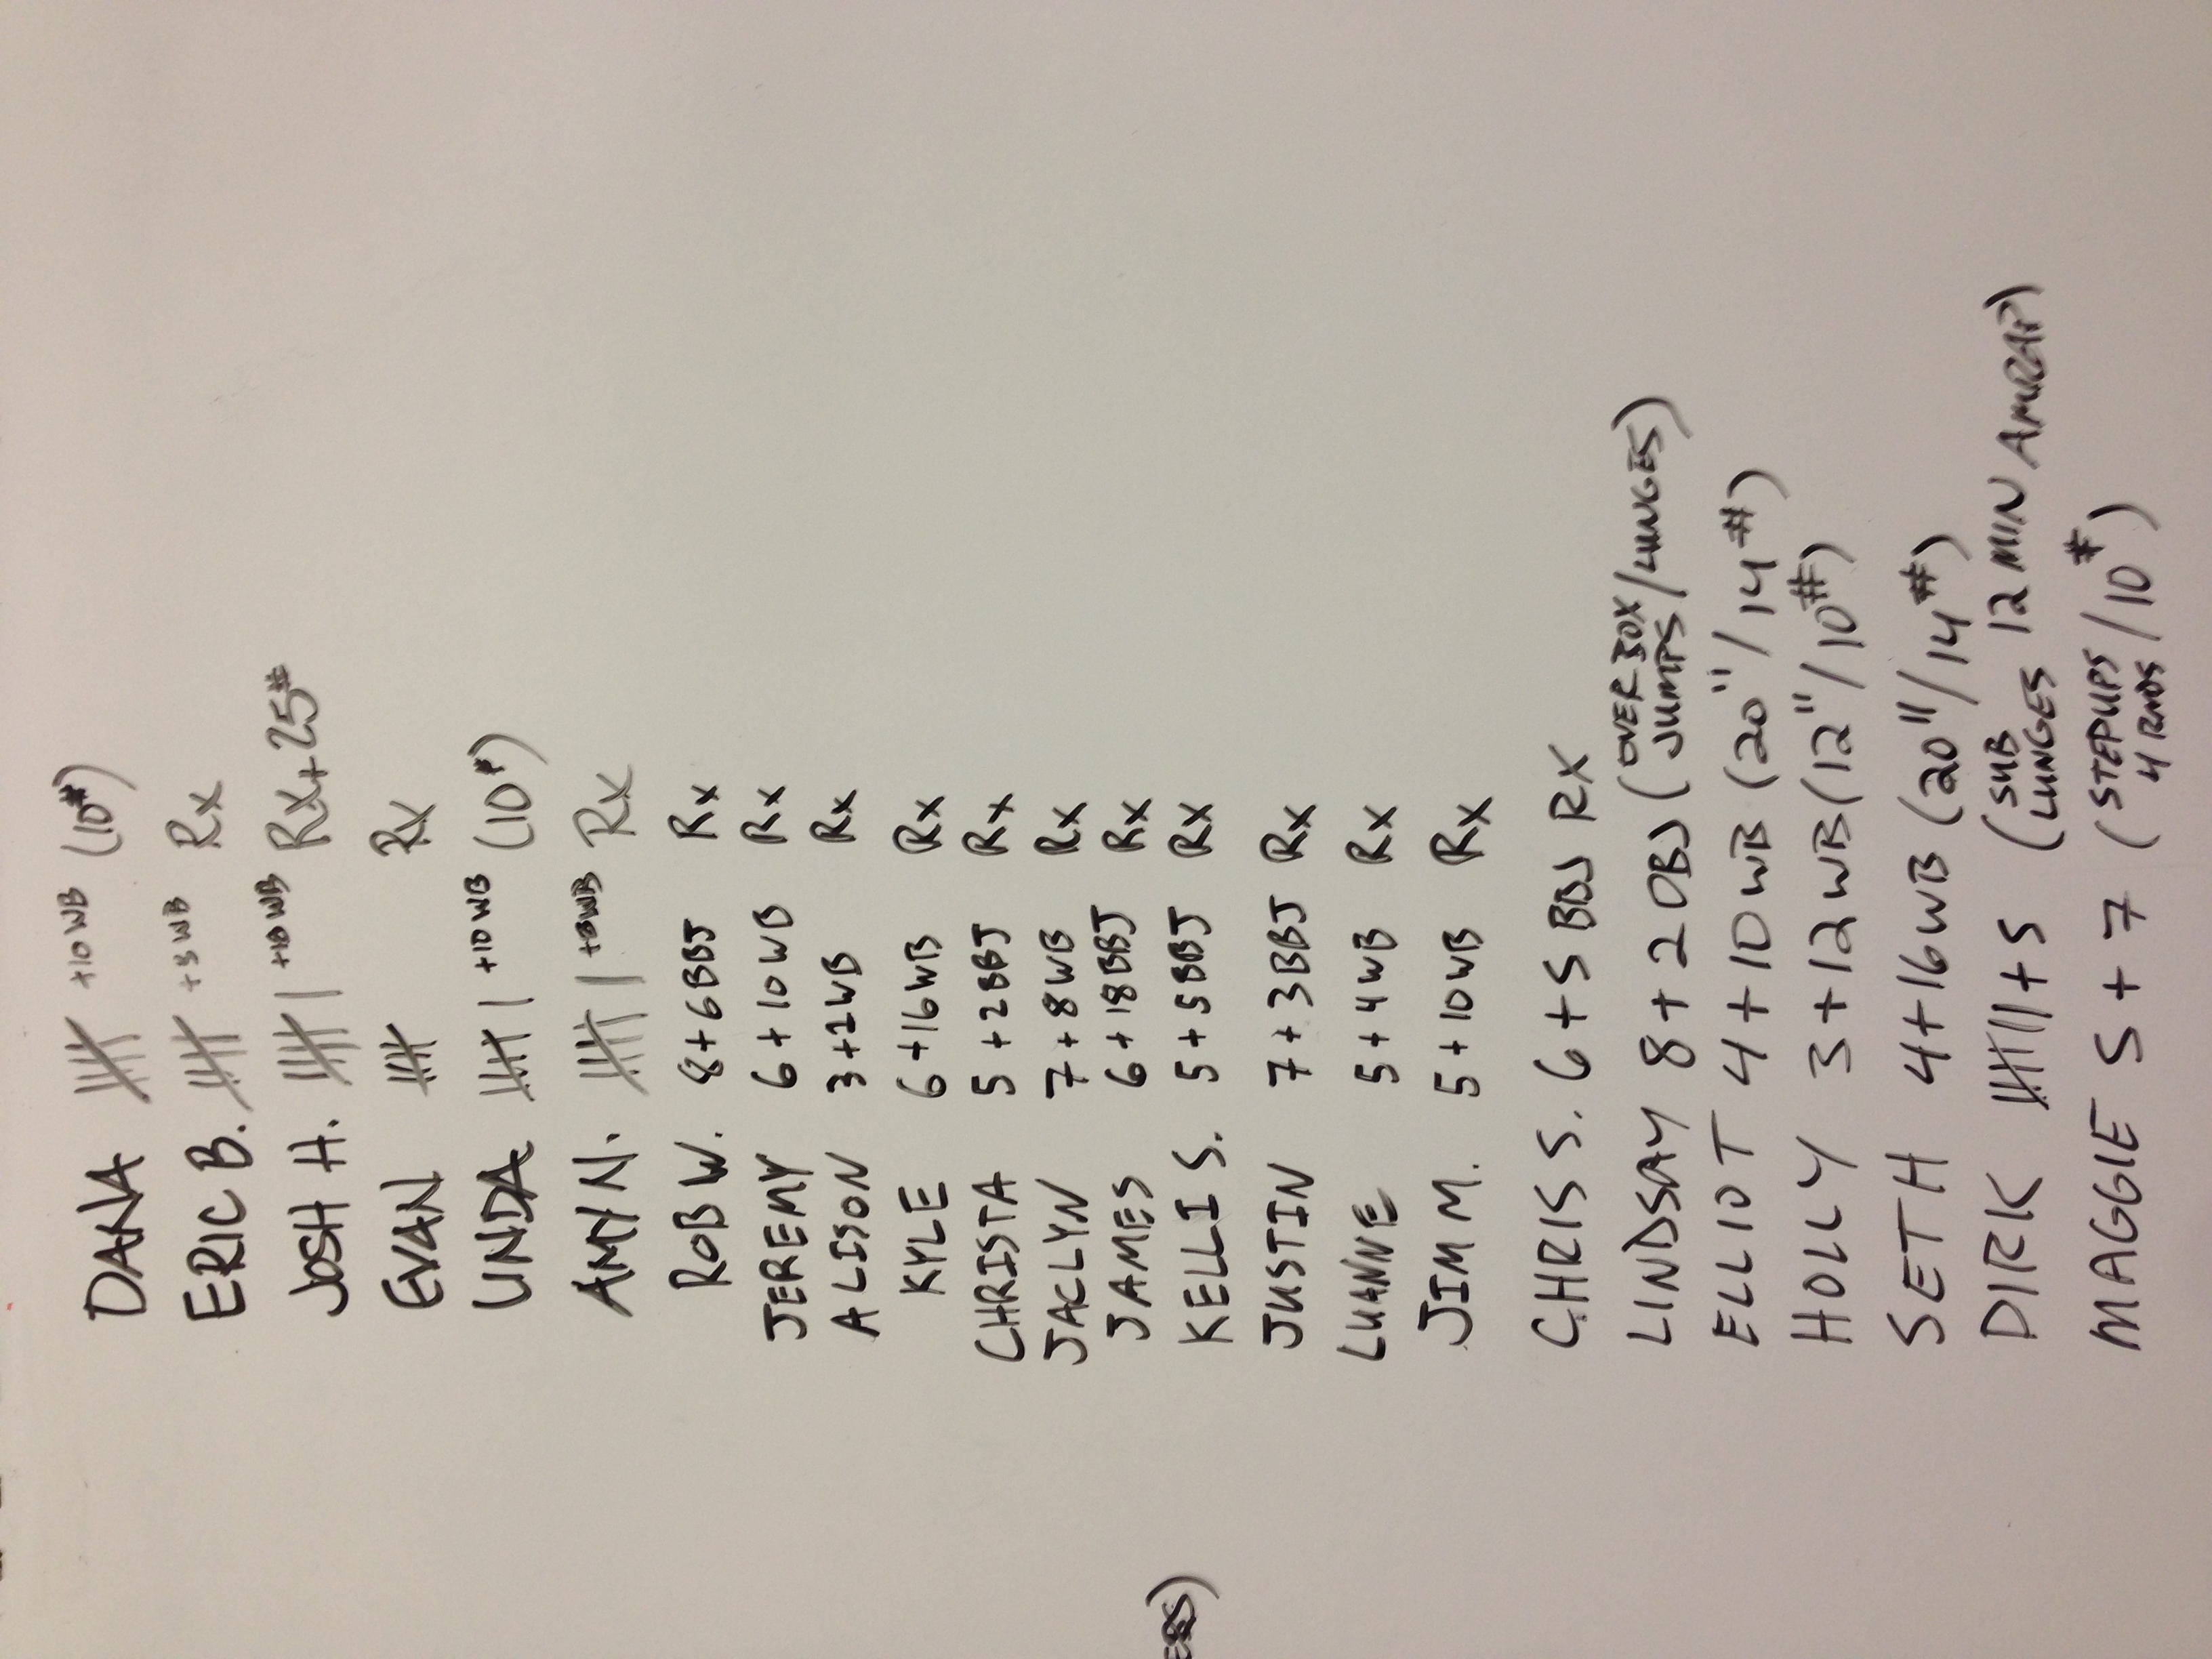 DANA 𝍸 +10WB (10#)
ERIC B. 𝍸 +3WB Rx
JOSH H. 𝍸 | +10WB Rx+25#
EVAN 𝍸 Rx
LINDA 𝍸 | +10WB (10#)
AMY N. 𝍸 | Rx
ROB W. 8+6BBJ Rx
JEREMY 6+10WB Rx
ALISON 3+2WB Rx
KYLE 6+16WB Rx
CHRISTA 5+2BBJ Rx
JACLYN 7+8WB Rx
JAMES 6+18BBJ Rx
KELLI S. 5+5BBJ Rx
JUSTIN 7+3BBJ Rx
LUANNE 5+4WB Rx
JIM M. 5+10WB Rx
CHRIS S. 6+5 BBJ RX
LINDSAY 8+20BJ (OVER BOX JUMPS/LUNGES)
ELLIOT 4+10WB (20"/14#)
HOLLY 3+12WB (12"/10#)
SETH 4+16WB (20"/14#)
DIRK 𝍸 ||+5 (SUB LUNGES 12 MIN AMRAP)
MAGGIE 5+7 (STEPUPS 4 RNDS/10#)